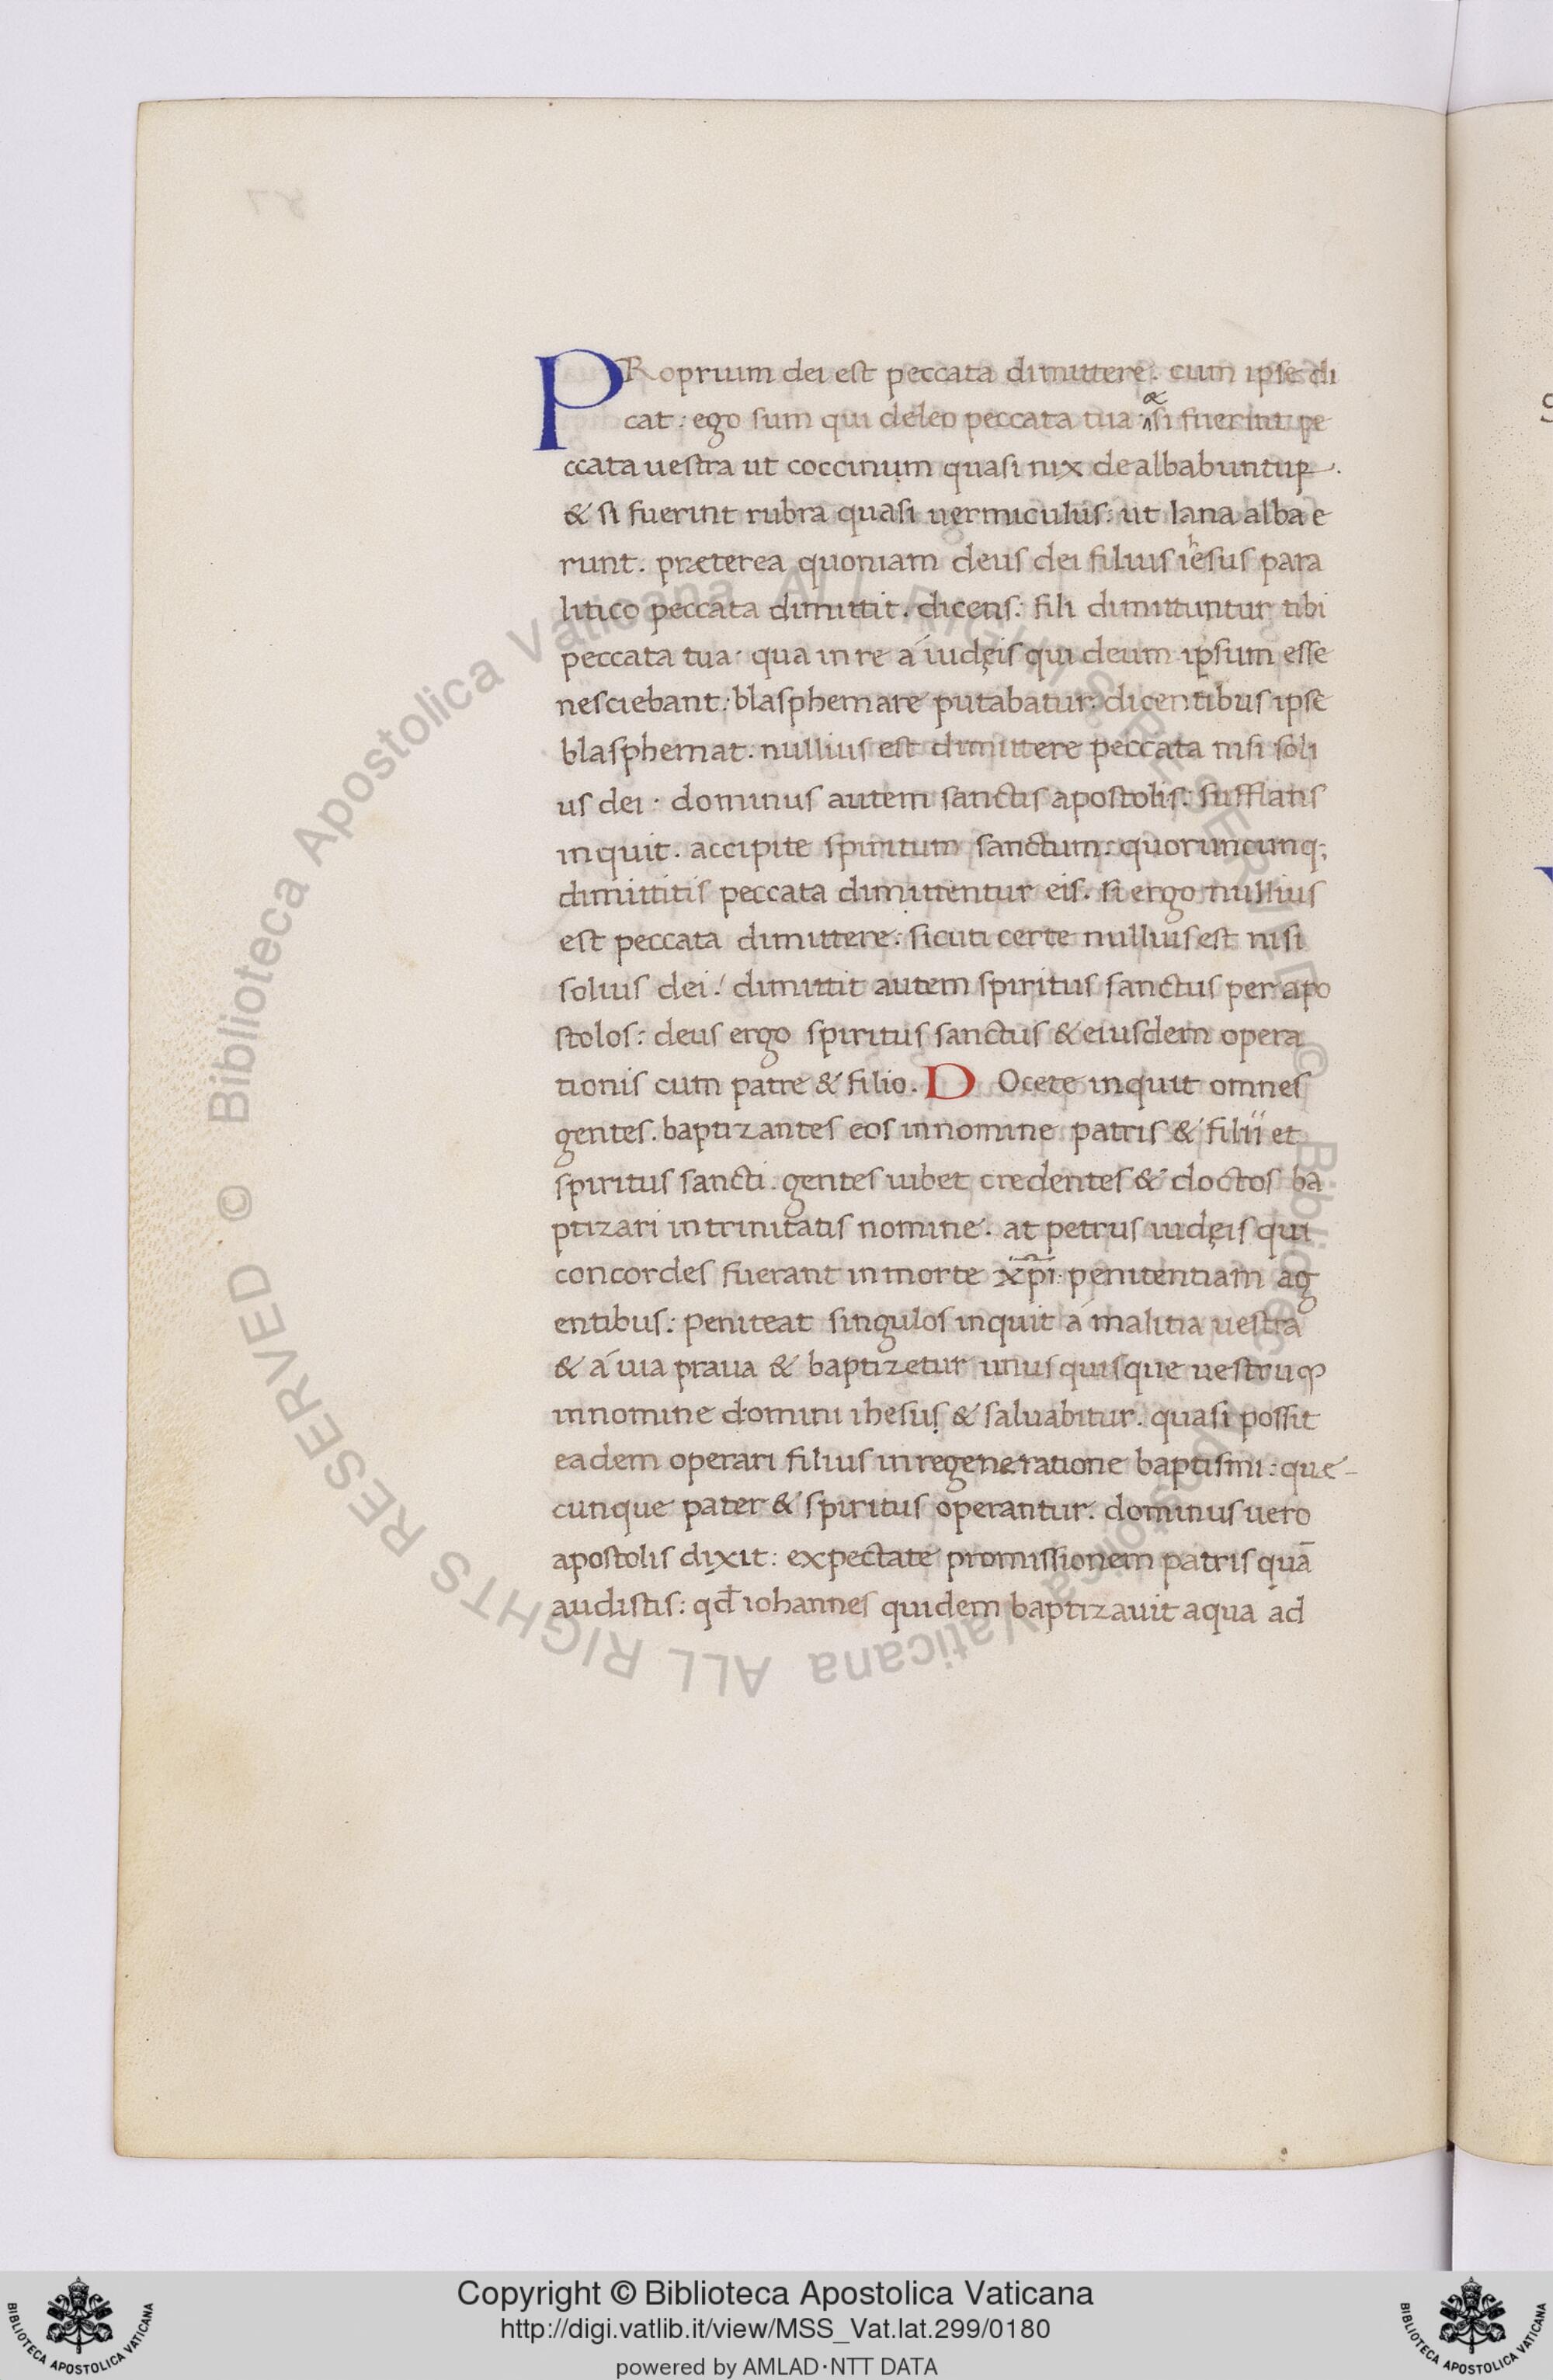 PRoprium dei est peccata dimittere. cum ipse di
cat: ego sum qui deleo peccata tua: & si fuerint pe
ccata uestra ut coccinum quasi nix dealbabuntur.
& si fuerint rubra quasi uermiculus: ut lana alba e
runt. præterea quoniam deus dei filius ihesus para
litico peccata dimittit. dicens: fili dimittuntur tibi
peccata tua: qua in re á iudęis qui deum ipsum esse
nesciebant: blasphemare putabatur: dicentibus ipse
blasphemat: nullius est dimittere peccata nisi soli
us dei: dominus autem sanctis apostolis: sufflans
inquit. accipite spiritum sanctum: quorumcunq;
dimittitis peccata dimittentur eis. si ergo nullius
est peccata dimittere: sicuti certe nullius est nisi
solius dei: dimittit autem spiritus sanctus per apo
stolos: deus ergo spiritus sanctus & eiusdem opera
tionis cum patre & filio. DOcete inquit omnes
gentes. baptizantes eos in nomine patris & filii et
spiritus sancti. gentes iubet credentes & doctos ba
ptizari in trinitatis nomine. at petrus iudęis qui
concordes fuerant in morte xp̄i: penitentiam ag
entibus: peniteat singulos inquit á malitia uestra
& á uia praua & baptizetur unusquisque uestruꝝ
in nomine domini ihesus & saluabitur. quasi possit
eadem operari filius in regeneratione baptismi: que-
cunque pater & spiritus operantur. dominus uero
apostolis dixit: expectate promissionem patris quā
audistis: qđ iohannes quidem baptizauit aqua ad
Copyright © Biblioteca Apostolica Vaticana
http://digi.vatlib.it/view/MSS_Vat.lat.299/0180
powered by AMLAD·NTT DATA
BIBLIOTECA APOSTOLICA VATICANA
BIBLIOTECA APOSTOLICA VATICANA
© Biblioteca Apostolica Vaticana ALL RIGHTS RESERVED © Biblioteca Apostolica Vaticana ALL RIGHTS RESERVED